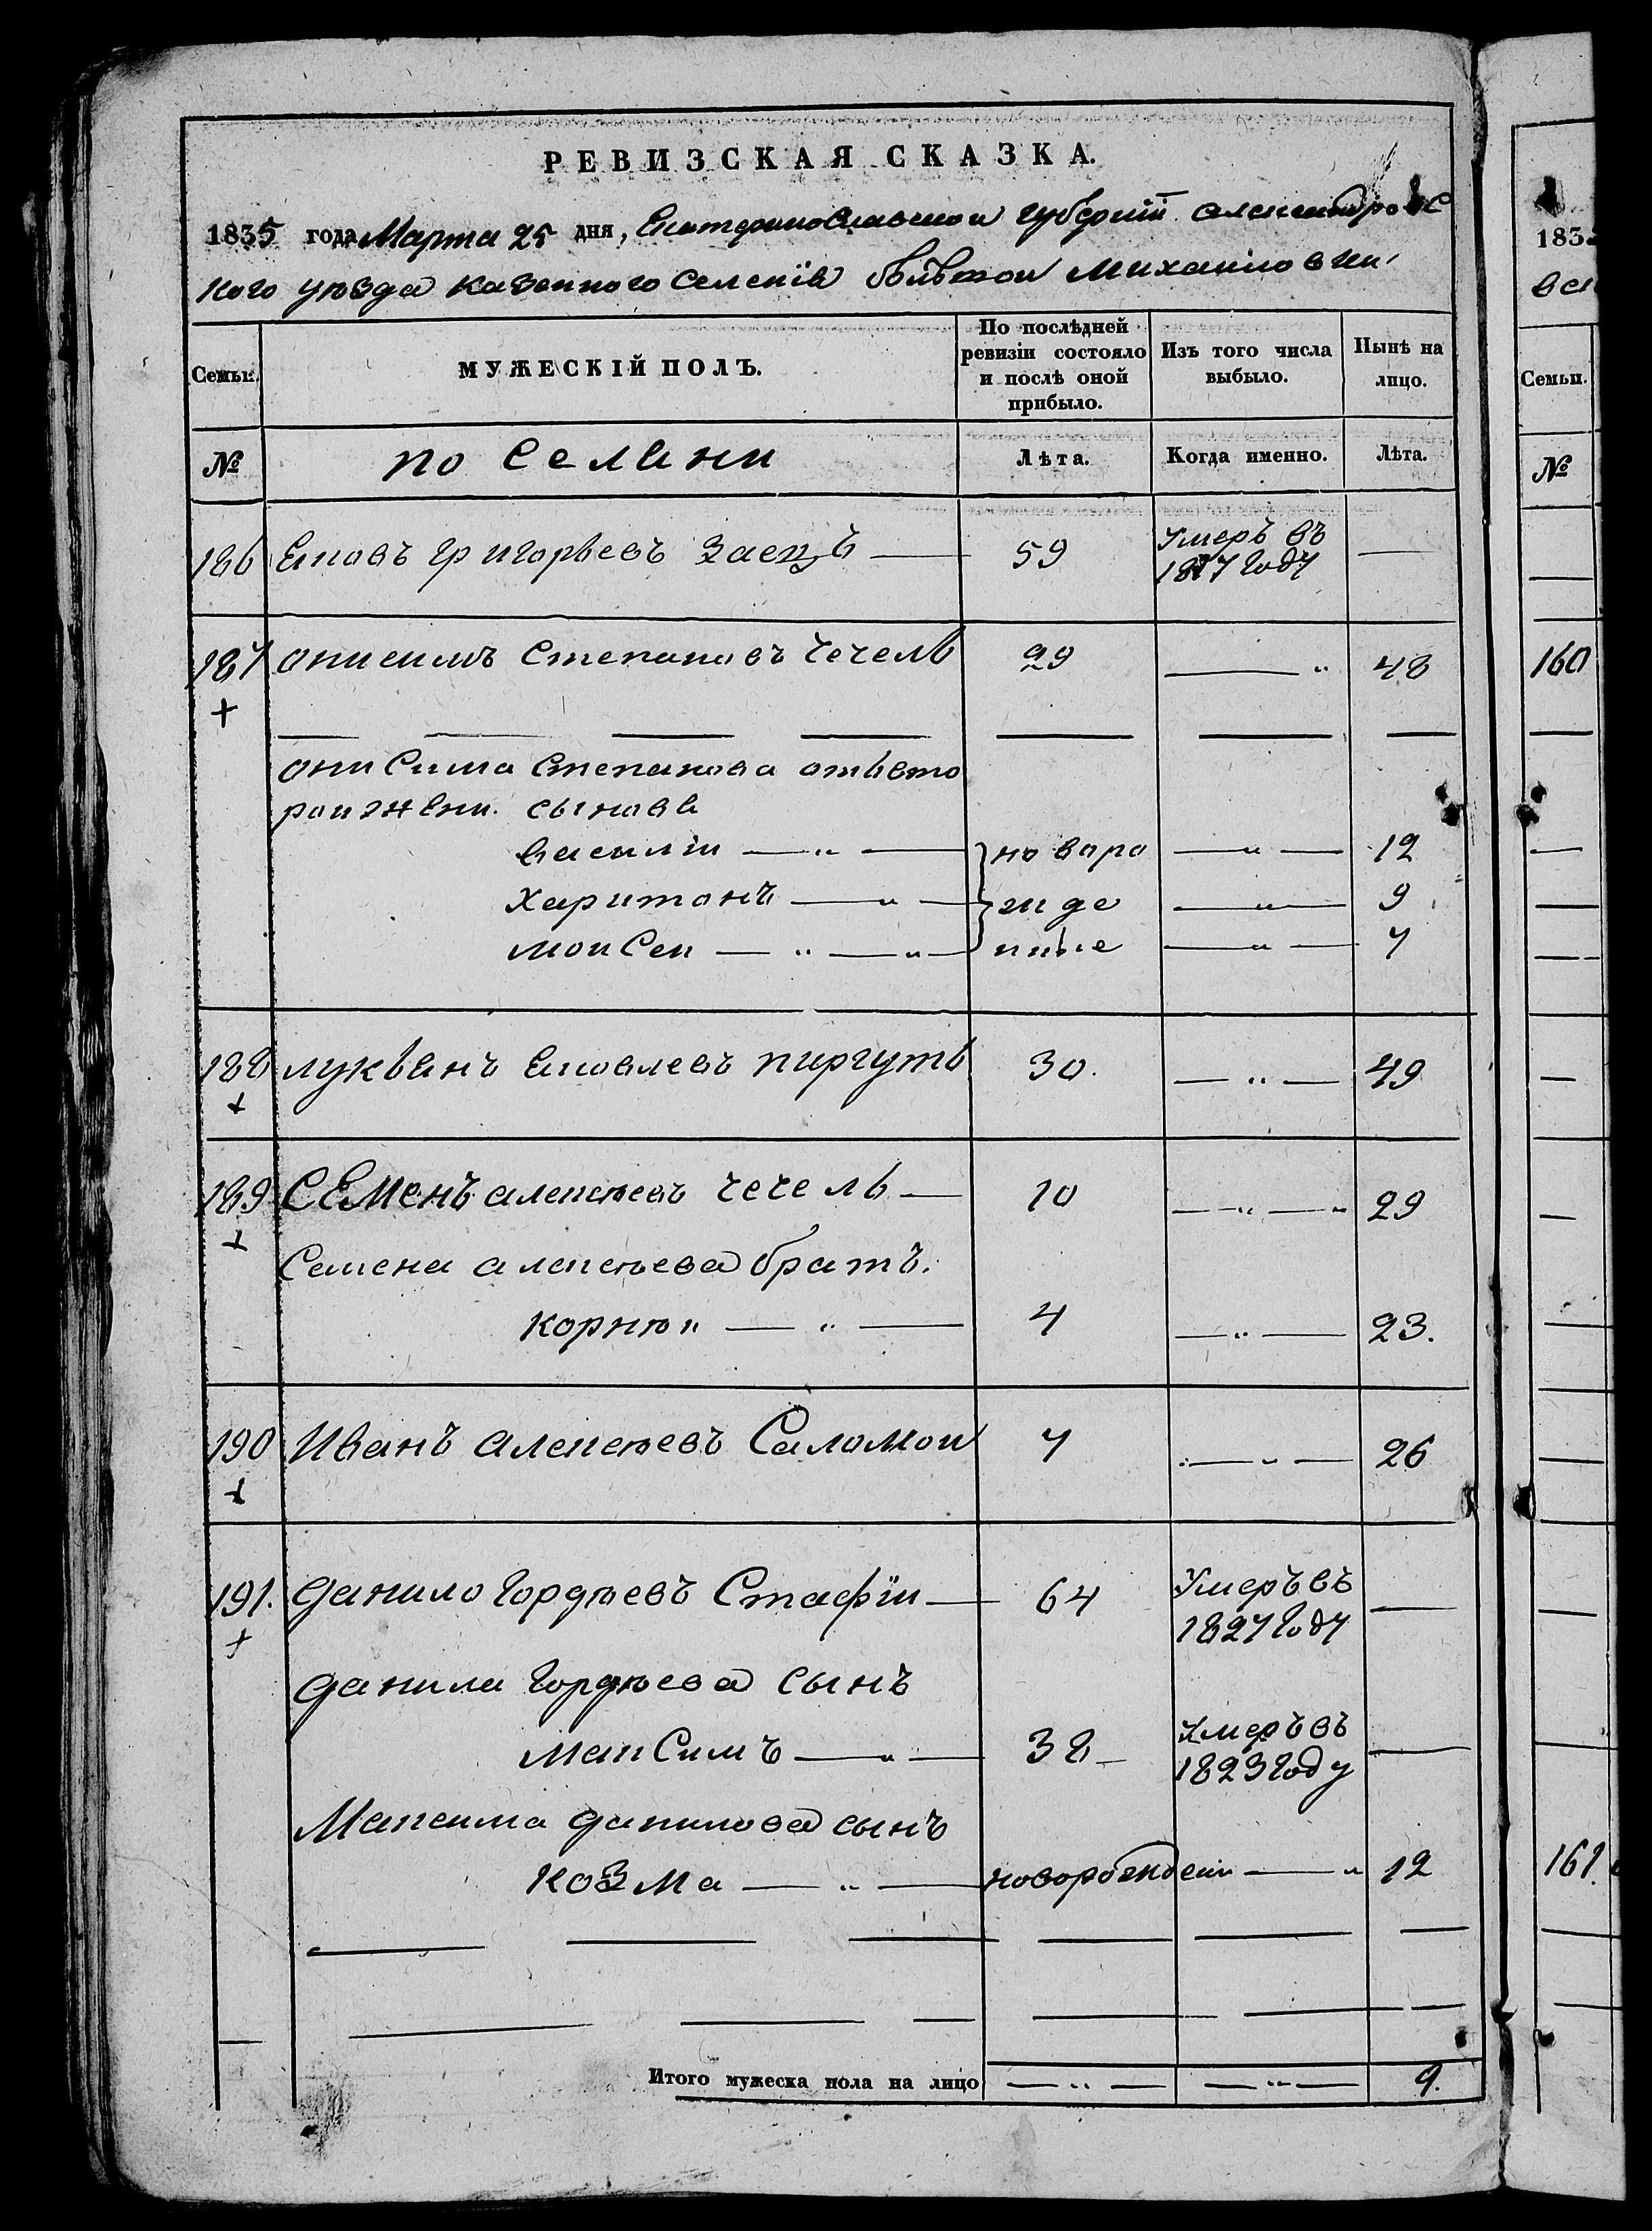 РЕВИЗСКАЯ СКАЗКА.
1835 года Марта 25 дня, Екатеринославской губернiи александровс
кого уѣзда казенного селенiя большой михаиловки
Семьи. МУЖЕСКІЙ ПОЛЪ. По послѣдней ревизіи состояло и послѣ оной прибыло. Изъ того числа выбыло. Нынѣ на лицо.
№ по селяни Лѣта. Когда именно. Лѣта.
186 Яковъ григорьевъ Заецъ — 59 Умеръ въ —
1817 году
187 онисимъ степановъ чечель 29 — 48
+
онисима степанова отъ вто
рой жени сыновя
василiй — 12
харитонъ — 9
моисей — 7
} новоро
жде
нные
188 лукьянъ яковлевъ пиргуть 30. — 49
+
189 Семенъ алексѣевъ чечель — 10 — 29
+
Семена алексѣева братъ.
корнѣй — 4 — 23.
190 Иванъ алексѣевъ Саломои 7 — 26
+
191. данило гордѣевъ Стафiи — 64 Умеръ въ —
+ 1827 году
данила гордѣева сынъ
максимъ — 38 Умеръ въ —
1823 году
Максима данилова сынъ
козма — новорожден — 12
Итого мужеска пола на лицо — 9.
183
вс
Семьи.
№
160
161.